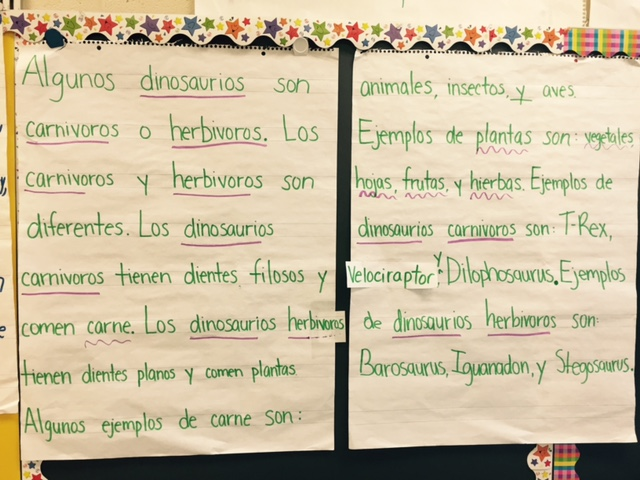 Algunos dinosaurios son
carnivoros o herbivoros. Los
carnivoros y herbivoros son
diferentes. Los dinosaurios
carnivoros tienen dientes filosos y
comen carne. Los dinosaurios herbivoros
tienen dientes planos y comen plantas
Algunos ejemplos de carne son:
animales, insectos, y aves
Ejemplos de plantas son: vegetales,
hojas, frutas, y hierbas. Ejemplos de
dinosaurios carnivoros son: T-Rex,
Velociraptor, y Dilophosaurus. Ejemplos
de dinosaurios herbivoros son:
Barosaurus, Iguanadon, y Stegosaurus.